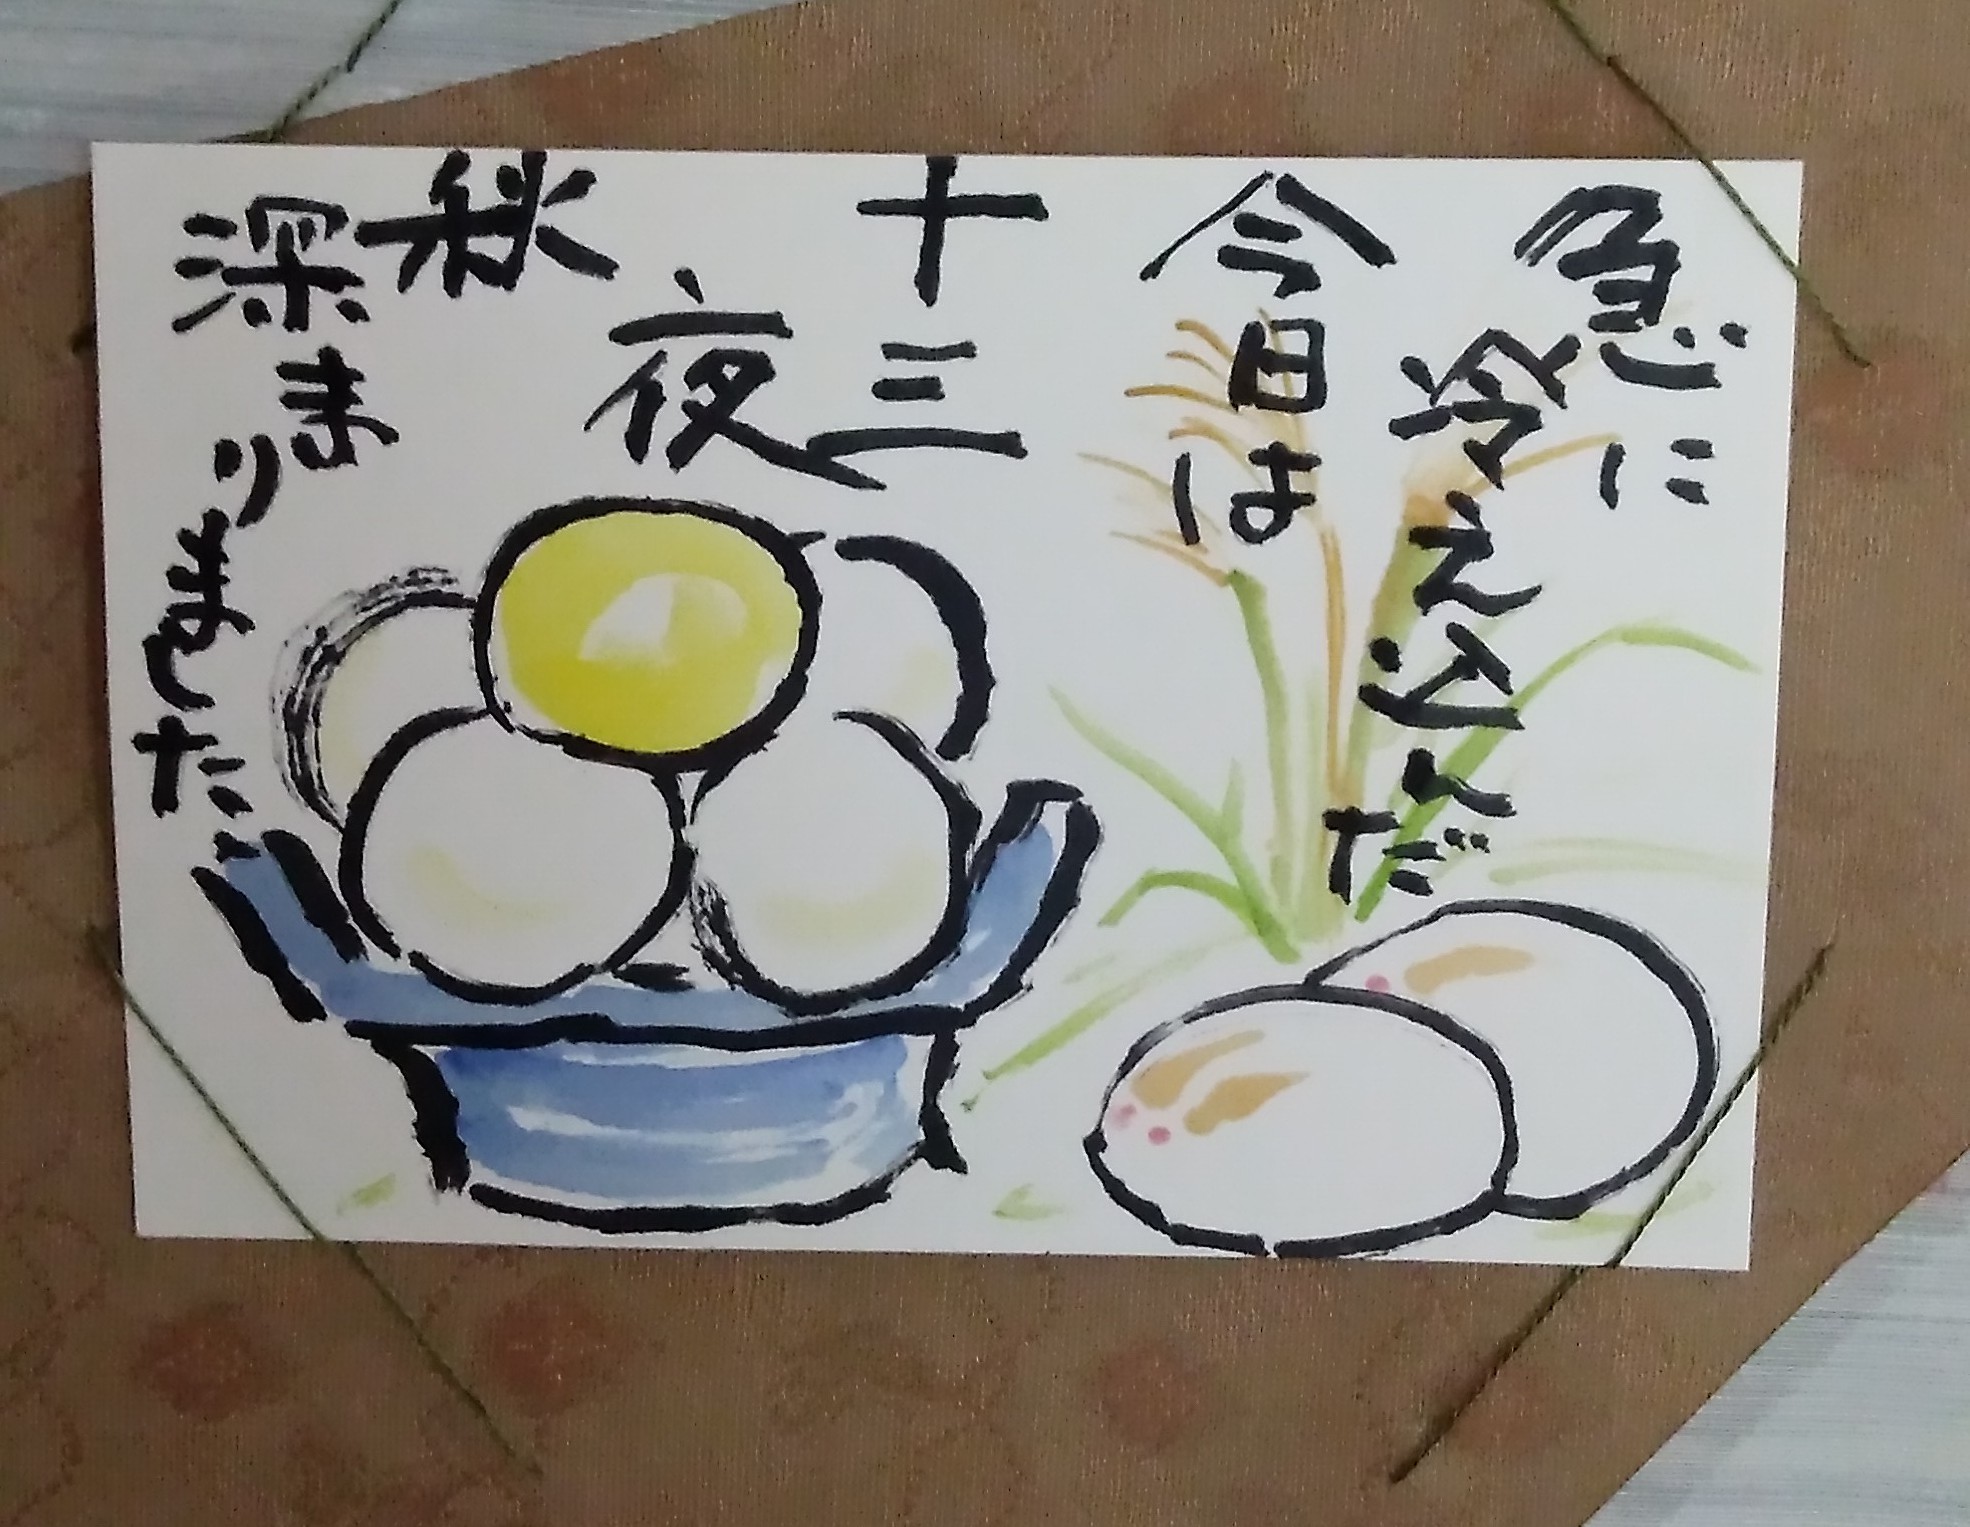 急に
冷え込んだ
今日は
十三
夜
秋
深まりました